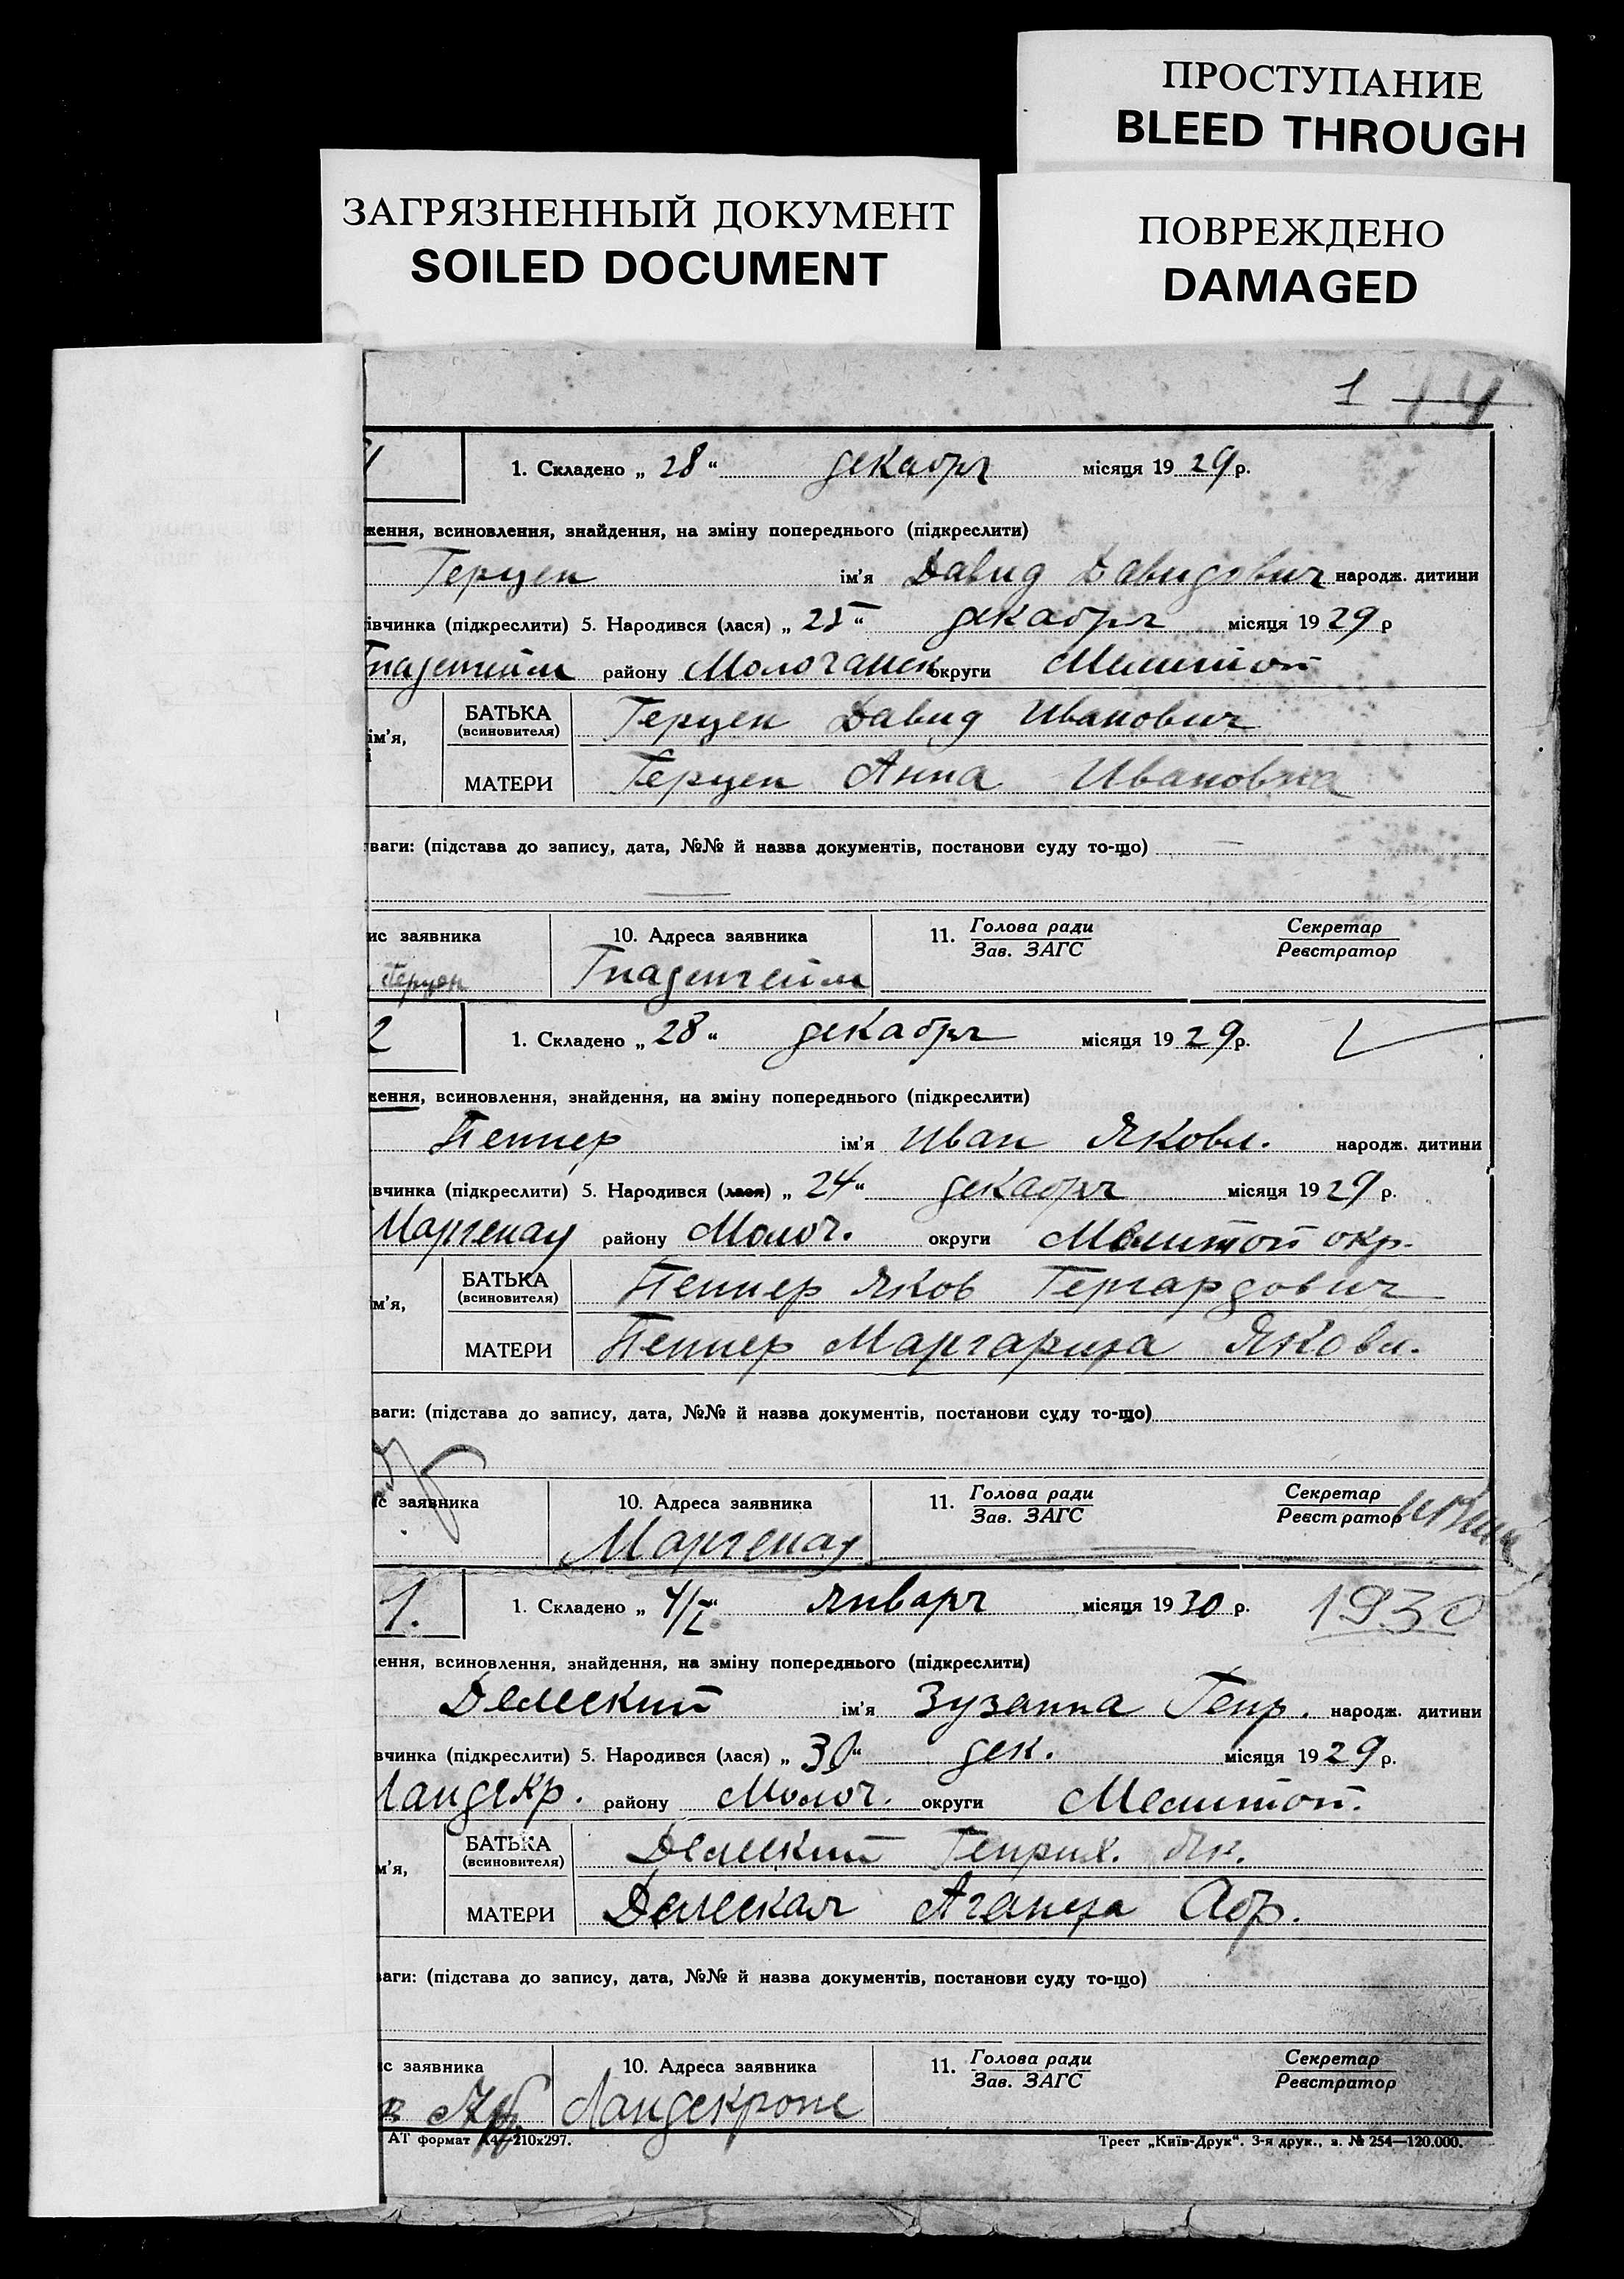 ПРОСТУПАНИЕ
BLEED THROUGH
ЗАГРЯЗНЕННЫЙ ДОКУМЕНТ
SOILED DOCUMENT
ПОВРЕЖДЕНО
DAMAGED
1 14
1. Складено „ 28 “ декабря місяця 19 29 р.
ження, всиновлення, знайдення, на зміну попереднього (підкреслити)
Герцен ім'я Давид Давидович народж. дитини
івчинка (підкреслити) 5. Народився (лася) „ 25 “ декабря місяця 19 29 р
Гнаденгейм району Молочанск округи Мелитоп
ім'я, БАТЬКА (всиновителя) Герцен Давид Иванович
МАТЕРИ Герцен Анна Ивановна
ваги: (підстава до запису, дата, №№ й назва документів, постанови суду то-що)
ис заявника 10. Адреса заявника 11. Голова ради Зав. ЗАГС Секретар Реєстратор
Герцен Гнаденгейм
2 1. Складено „ 28 “ декабря місяця 19 29 р.
ження, всиновлення, знайдення, на зміну попереднього (підкреслити)
Пеннер ім'я Иван Яковл. народж. дитини
вчинка (підкреслити) 5. Народився (лася) „ 24 “ декабря місяця 19 29 р.
Маргенау району Молоч. округи Мелитоп окр.
м'я, БАТЬКА (всиновителя) Пеннер Яков Гергардович
МАТЕРИ Пеннер Маргарита Яковл.
ваги: (підстава до запису, дата, №№ й назва документів, постанови суду то-що)
іс заявника 10. Адреса заявника 11. Голова ради Зав. ЗАГС Секретар Реєстратор
Маргенау
1. 1. Складено „ 4/I “ январч місяця 19 30 р. 1930
ення, всиновлення, знайдення, на зміну попереднього (підкреслити)
Делеский ім'я Зузанна Генр. народж. дитини
вчинка (підкреслити) 5. Народився (лася) „ 30 “ дек. місяця 19 29 р.
Ландскр. району Молоч. округи Мелитоп.
м'я, БАТЬКА (всиновителя) Делеский Генрих. Як.
МАТЕРИ Делеская Аганета Абр.
ваги: (підстава до запису, дата, №№ й назва документів, постанови суду то-що)
с заявника 10. Адреса заявника 11. Голова ради Зав. ЗАГС Секретар Реєстратор
Ландскроне
АТ формат А4—210х297. Трест „Київ-Друк“. 3-я друк., з. № 254—120.000.